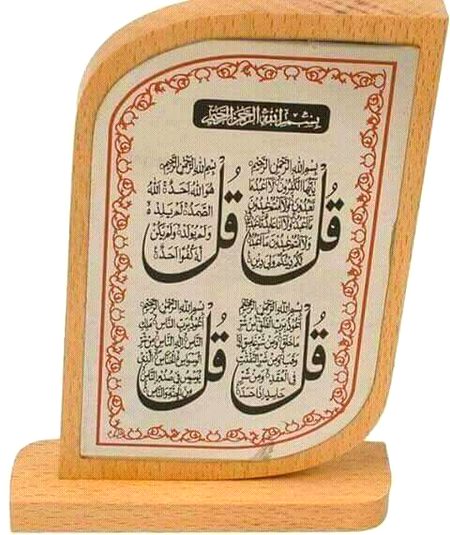 بسم الله الرحمن الرحيم
بسم الله الرحمن الرحيم
قل
يايها الكفرون لا اعبد ما
تعبدون ولا انتم عبدون
ما اعبد ولا انا عابد ما عبدتم
ولا انتم عبدون ما اعبد
لكم دينكم ولي دين
بسم الله الرحمن الرحيم
قل
هو الله احد الله
الصمد لم يلد
ولم يولد ولم يكن
له كفوا احد
بسم الله الرحمن الرحيم
قل
اعوذ برب الفلق من شر
ما خلق ومن شر غاسق اذا
وقب ومن شر النفثت
في العقد ومن شر
حاسد اذا حسد
بسم الله الرحمن الرحيم
قل
اعوذ برب الناس ملك
الناس اله الناس من شر
الوسواس الخناس الذي
يوسوس في صدور الناس
من الجنة والناس